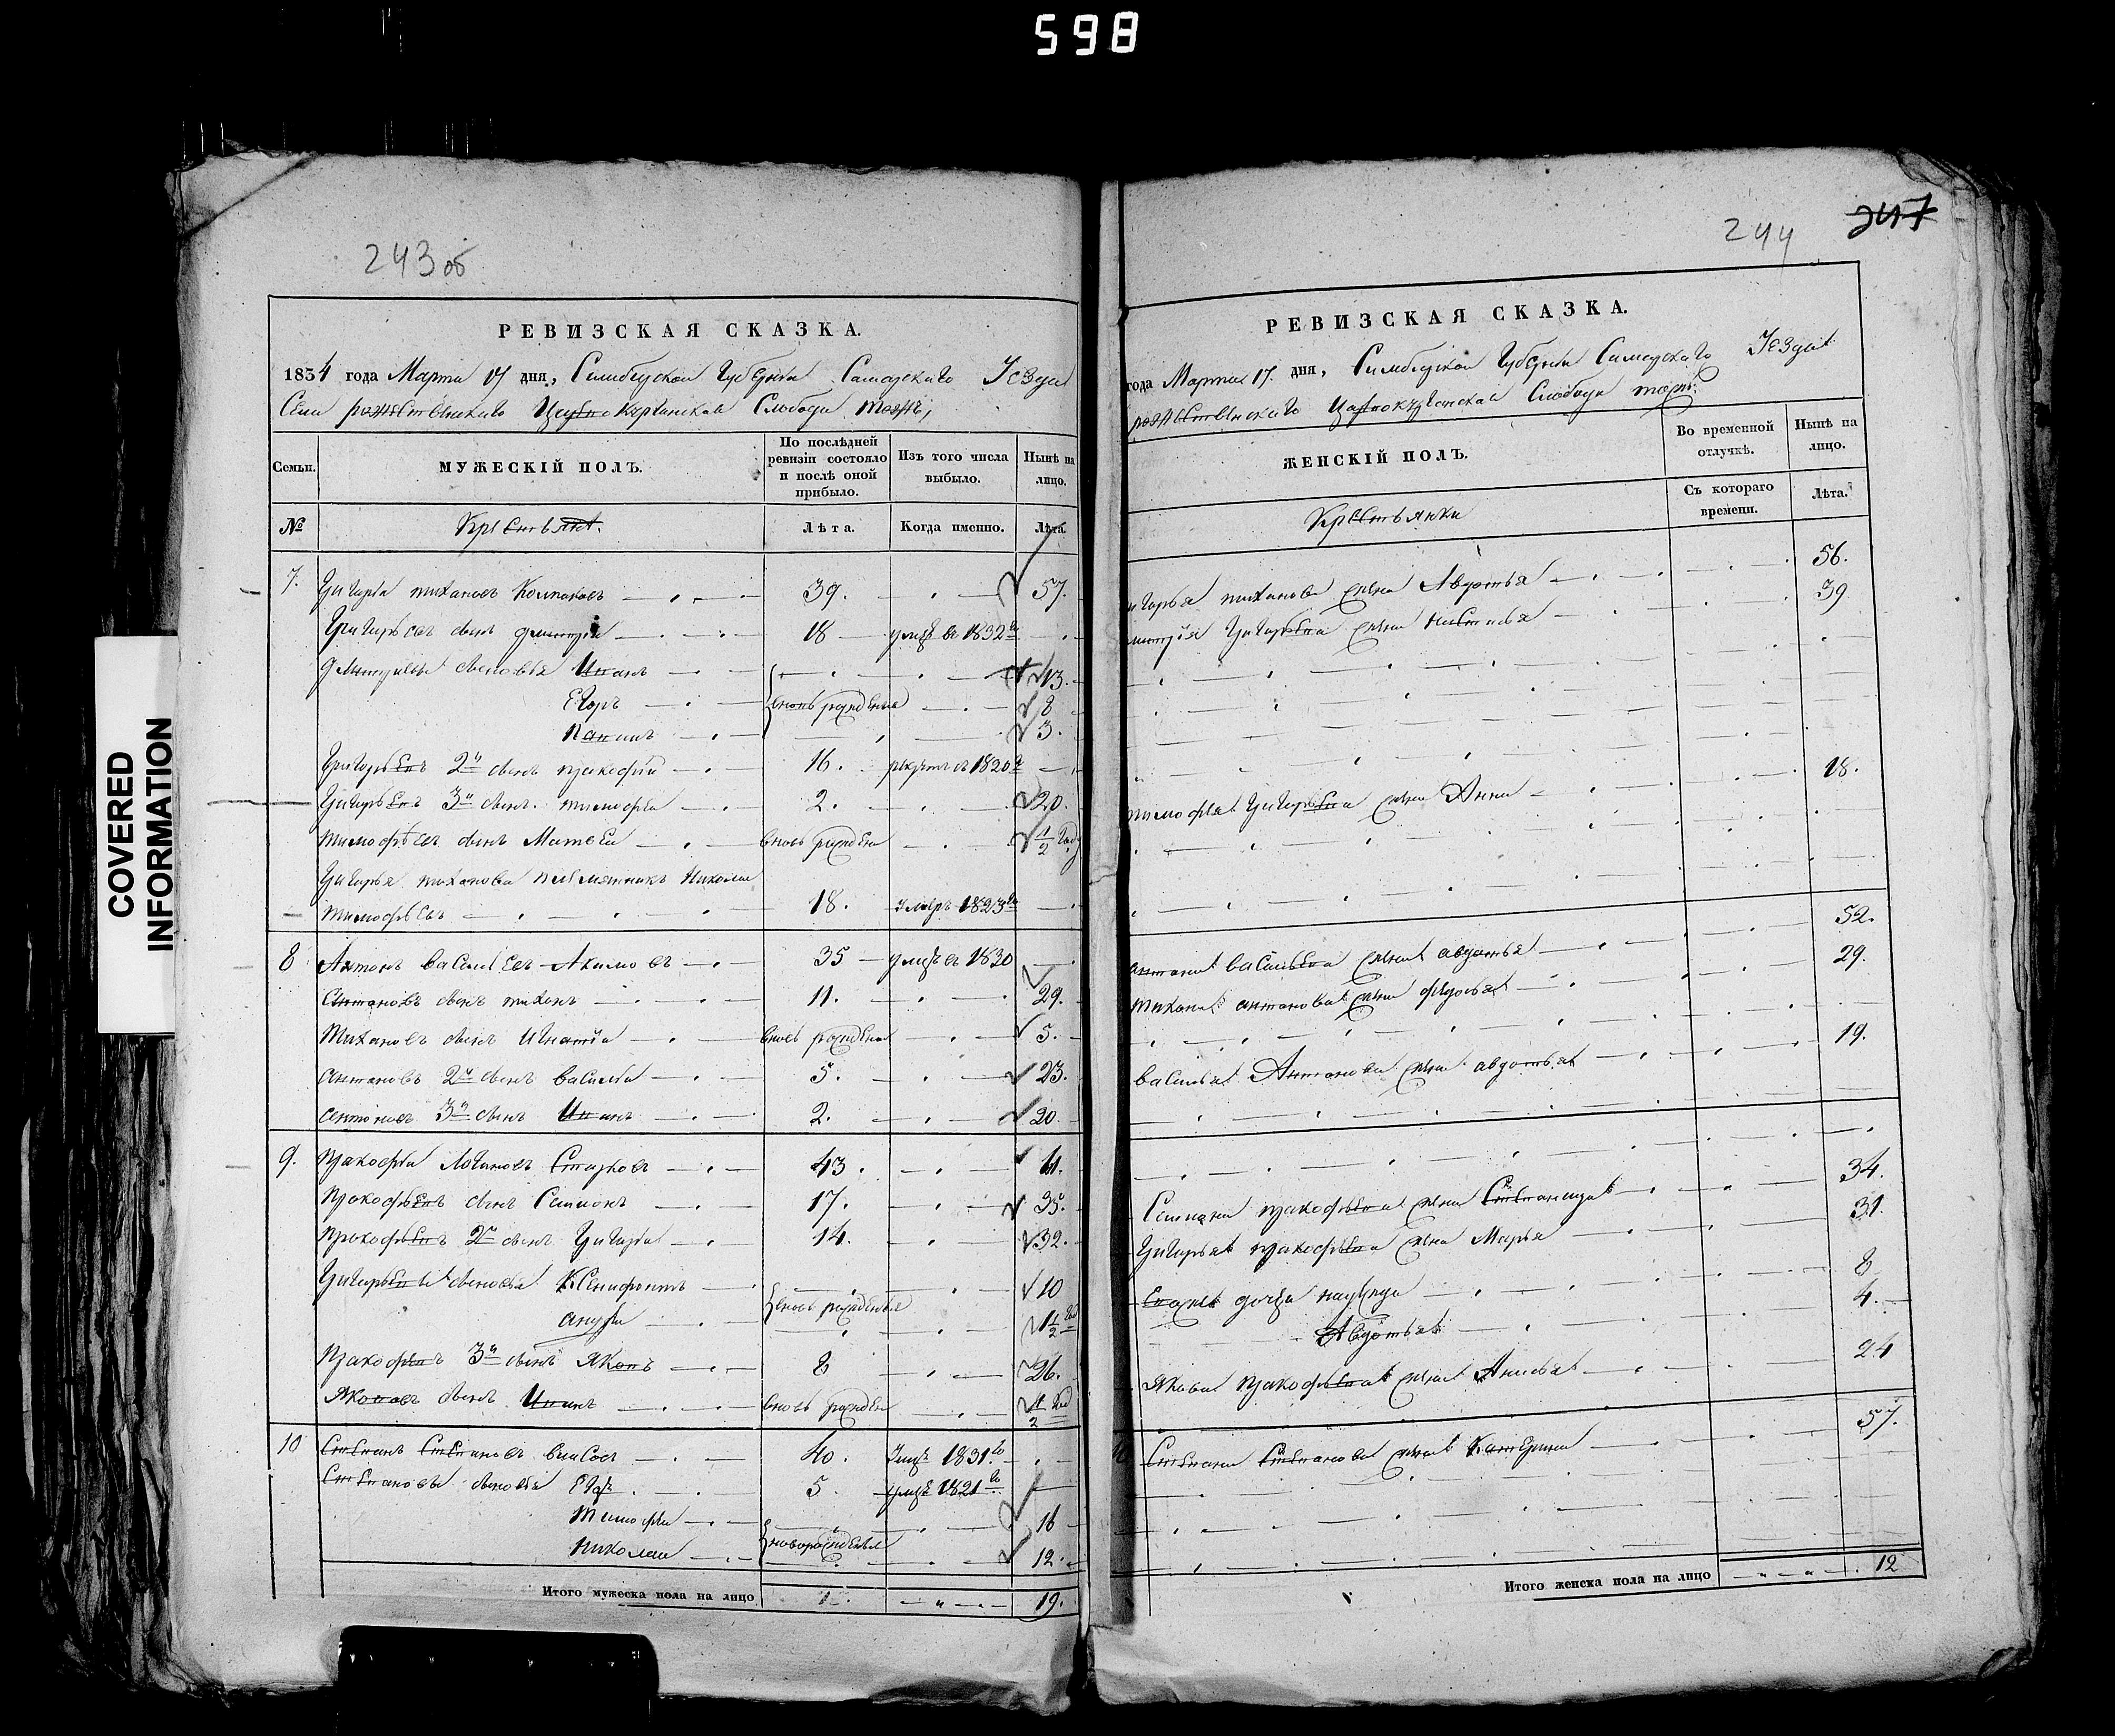 598
COVERED
INFORMATION
243об
РЕВИЗСКАЯ СКАЗКА.
1834 года Марта 17 дня, Симбирской Губернии Самарского Уезда
Села рожественского Слободы тожъ,
Семьи.
МУЖЕСКІЙ ПОЛЪ.
По послѣдней ревизіи состояло и послѣ оной прибыло.
Изъ того числа выбыло.
Нынѣ на лицо.
№
Крестьяне.
Лѣта.
Когда именно.
Лѣта.
7. Григорей тихановъ Колпаковъ 39. 57.
Григорьевъ сынъ дмитрей 18 умре въ 1832го
дмитриевы сыновья Иванъ 13.
Егоръ вновь рождены 8
Панинъ 3.
Григорьевъ 2й сынъ пракофий 16. рекрутъ въ 1820м
Григорьевъ 3й сынъ тимофей 2. 20.
тимофѣевъ сынъ Матвей вновь рожденъ 1/2 году
Григорья тиханова племянникъ Николай
тимофѣевъ 18. умеръ 1823го
8 Антонъ васильевъ Акимовъ 35 умре въ 1830
антановъ сынъ тиханъ 11. 29.
тихановъ сынъ Игнатей вновь рожденъ 5.
антановъ 2й сынъ василей 5. 23.
антоновъ 3й сынъ Иванъ 2. 20.
9. пракофей Логиновъ Старковъ 43. 61.
пракофьевъ сынъ Семионъ 17. 35.
пракофьевъ 2й сынъ Григорей 14. 32.
Григорьевы сыновья Ксенифонтъ 10
андрей вновь рожденыя 1 1/2 год
пракофьевъ 3й сынъ Яковъ 8 26.
Яковевъ сынъ Иванъ вновь рожденъ 1/2 год
10 Степанъ Степановъ власовъ 40. умре 1831го
Степановы сыновья Егоръ 5. умре 1821го
Тимофей 16
николай новорожденыя 12.
Итого мужеска пола на лицо 19.
244 247
РЕВИЗСКАЯ СКАЗКА.
года Марта 17. дня, Симбирской Губернии Самарского Уезда
рожественского Слобода тожъ.
ЖЕНСКІЙ ПОЛЪ.
Во временной отлучкѣ.
Нынѣ на лицо.
Крестьянки
Съ котораго времени.
Лѣта.
тиханова жена Авдотья 56.
Григорьева жена настасья 39
тимофея Григорьева жена Анна 18.
антана васильева жена авдотья 52.
тихана антанова жена федосья 29.
василья Антанова жена авдотья 19.
Семиона пракофьева жена Степанида 34.
Григорья пракофьева жена Марья 31.
дочери 8
Авдотья 4.
Якова пракофьева жена Анисья 24
Степана Степанова жена Катерина 57.
Итого женска пола на лицо 12